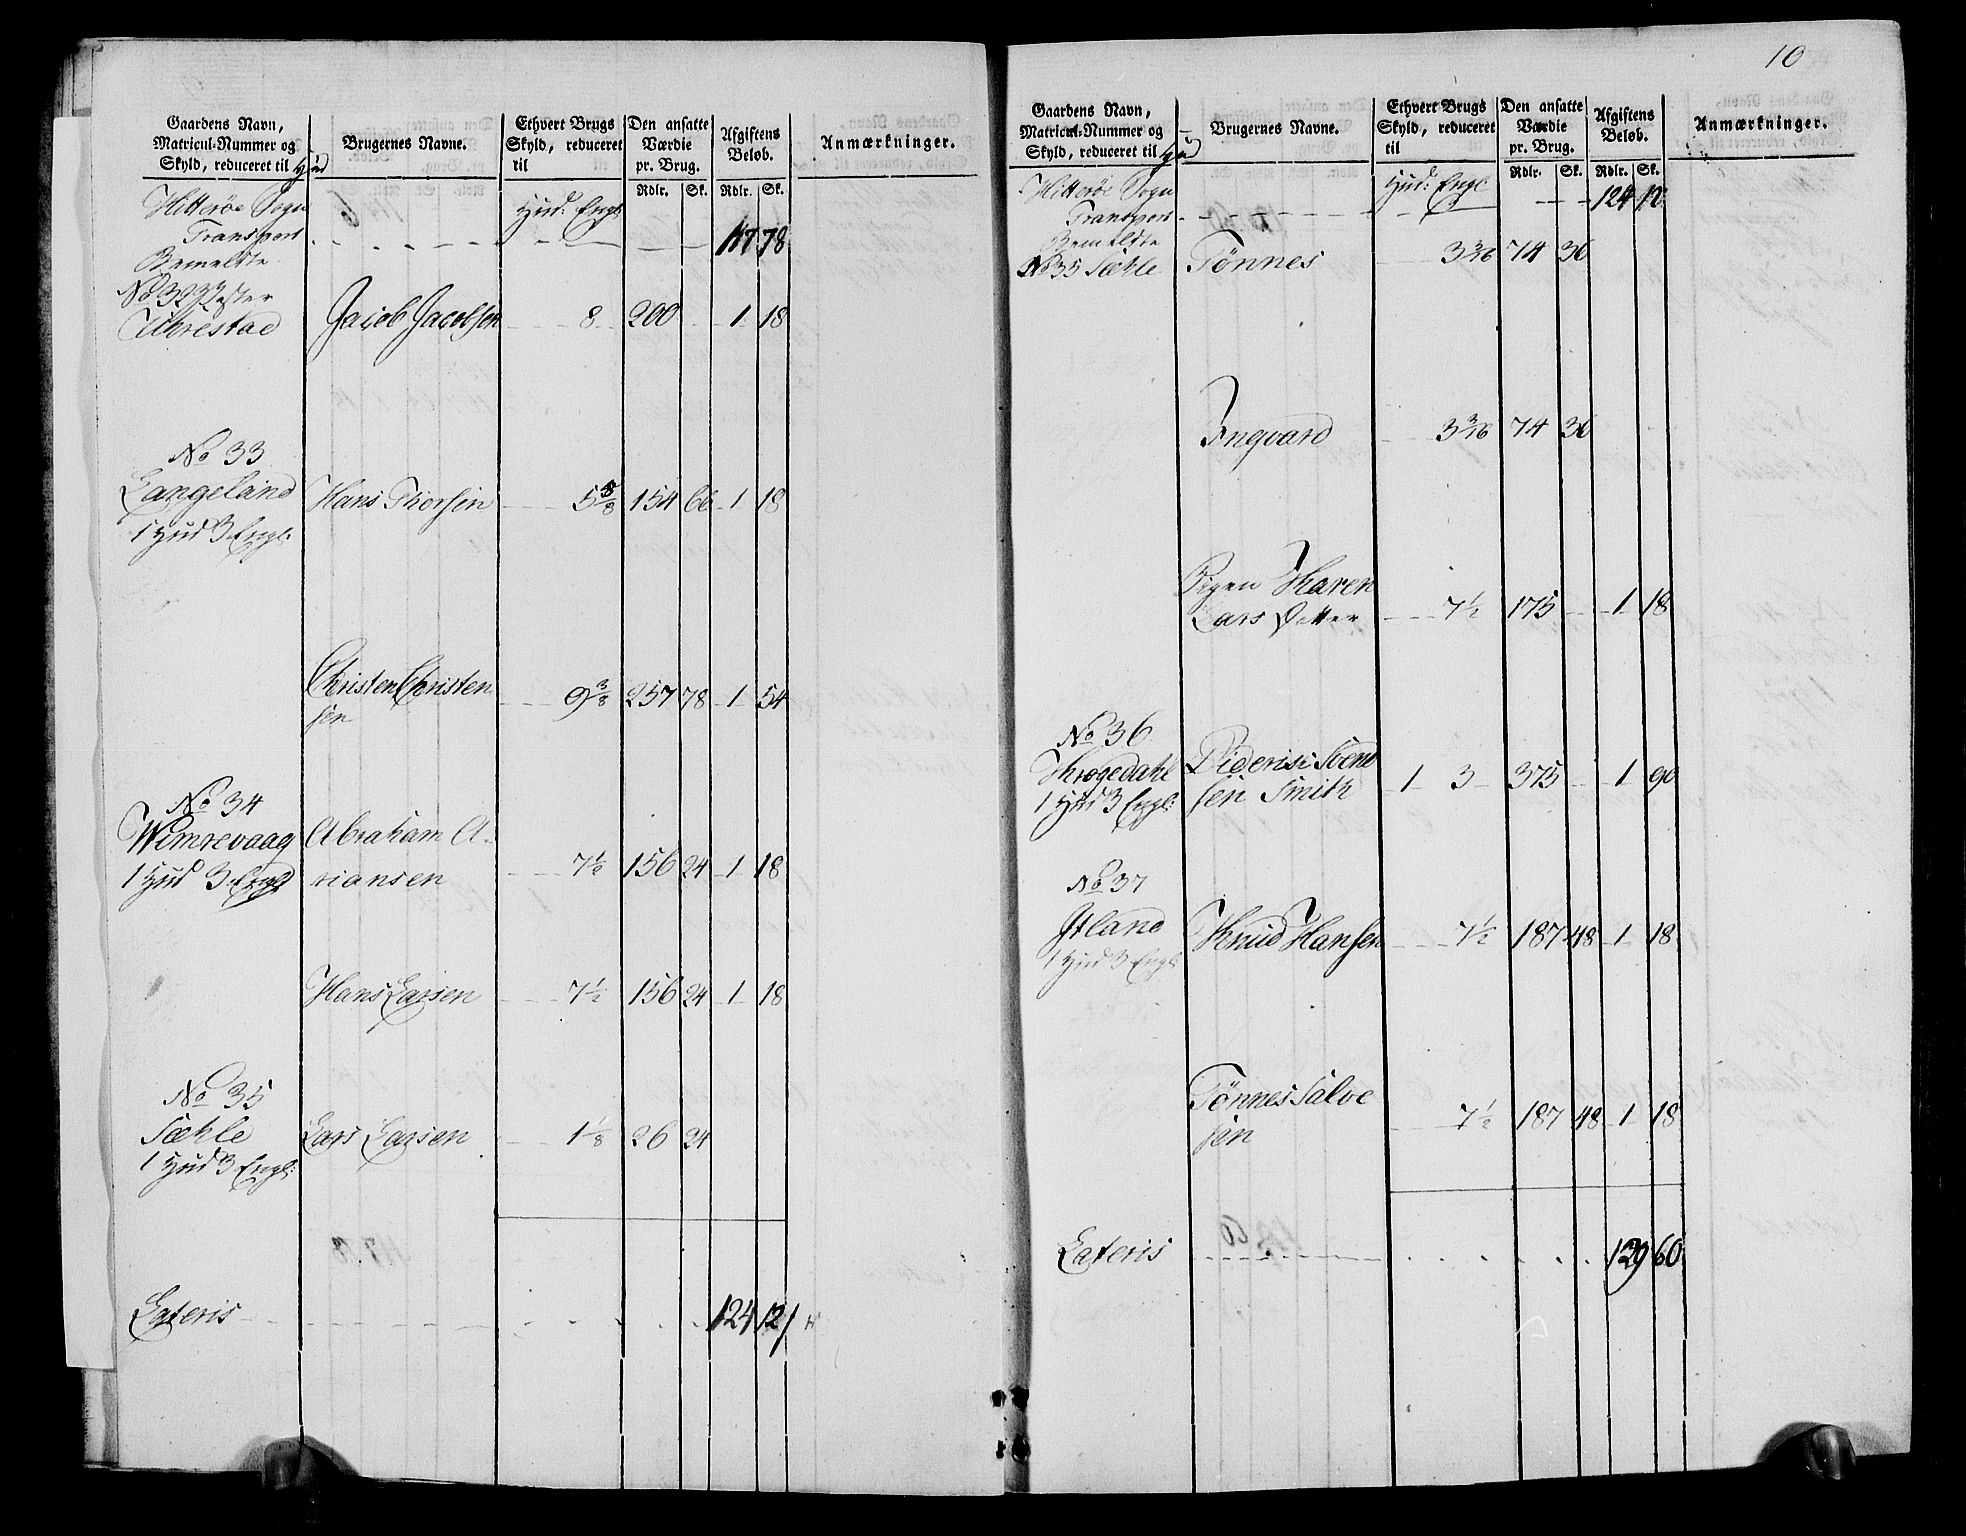 Gaardens Navn, Matricul-Nummer og Skyld, reduceret til Hud
Brugernes Navne.
Ethvert Brugs Skyld, reduceret til
Den ansatte Værdie pr. Brug.
Afgiftens Beløb.
Anmærkninger.
Rdlr. Sk. Rdlr. Sk.
Hitterøe Sogn Hud: Engl:
Transport 117 78
Bemeldte
No 32 Vester
Uhrestad Jacob Jacobsen 8 200 1 18
No 33
Langeland Hans Thorsen 5 5/8 154 66 1 18
1 Hud 3 Engl:
Christen Christen 9 3/8 257 78 1 54
sen
No 34
Wimrevaag Abraham A-
1 Hud 3 Engl riansen 7 1/2 156 24 1 18
Hans Larsen 7 1/2 156 24 1 18
No 35
Sæhle Lars Larsen 1 1/8 26 24
1 Hud 3 Engl:
Lateris 124 12
10
Gaardens Navn, Matricul-Nummer og Skyld, reduceret til Hud
Brugernes Navne.
Ethvert Brugs Skyld, reduceret til
Den ansatte Værdie pr. Brug.
Afgiftens Beløb.
Anmærkninger.
Rdlr. Sk. Rdlr. Sk.
Hitterøe Sogn Hud: Engl
Transport 124 12
Bemeldte
No 35 Sæhle Tønnes 3 3/16 74 36
Ingvard 3 3/16 74 36
Pigen Karen
Lars Datter 7 1/2 175 1 18
No 36
Krogedahl Dideric Svend 1 3 375 1 90
1 Hud 3 Engl: sen Smith
No 37
Itland Knud Hansen 7 1/2 187 48 1 18
1 Hud 3 Engl
Tønnes Salve
sen 7 1/2 187 48 1 18
Lateris 129 60